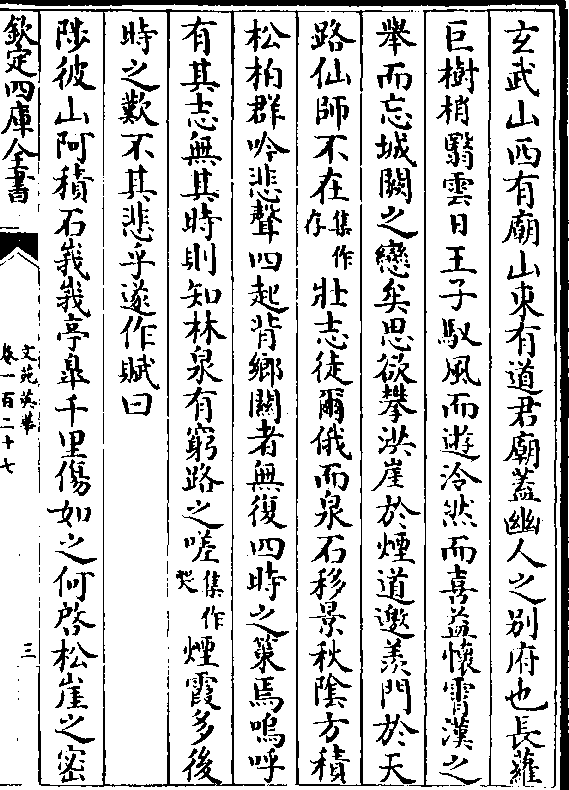 玄武山西有廟山東有道君廟蓋幽人之别府也長蘿
巨樹梢翳雲日王子馭風而遊泠然而喜益懷霄漢之
舉而忘城闕之戀矣思欲攀洪崖於煙道邀羨門於天
路仙師不在集作存壯志徒爾俄而泉石移景秋陰方積
松柏群吟悲聲四起背鄉關者無復四時之策焉嗚呼
有其志無其時則知林泉有窮路之嗟集作哭煙霞多後
時之歎不其悲乎遂作賦曰
陟彼山阿積石峩峩亭臯千里傷如之何啓松崖之密
欽定四庫全書
文苑英華
卷一百二十七
三